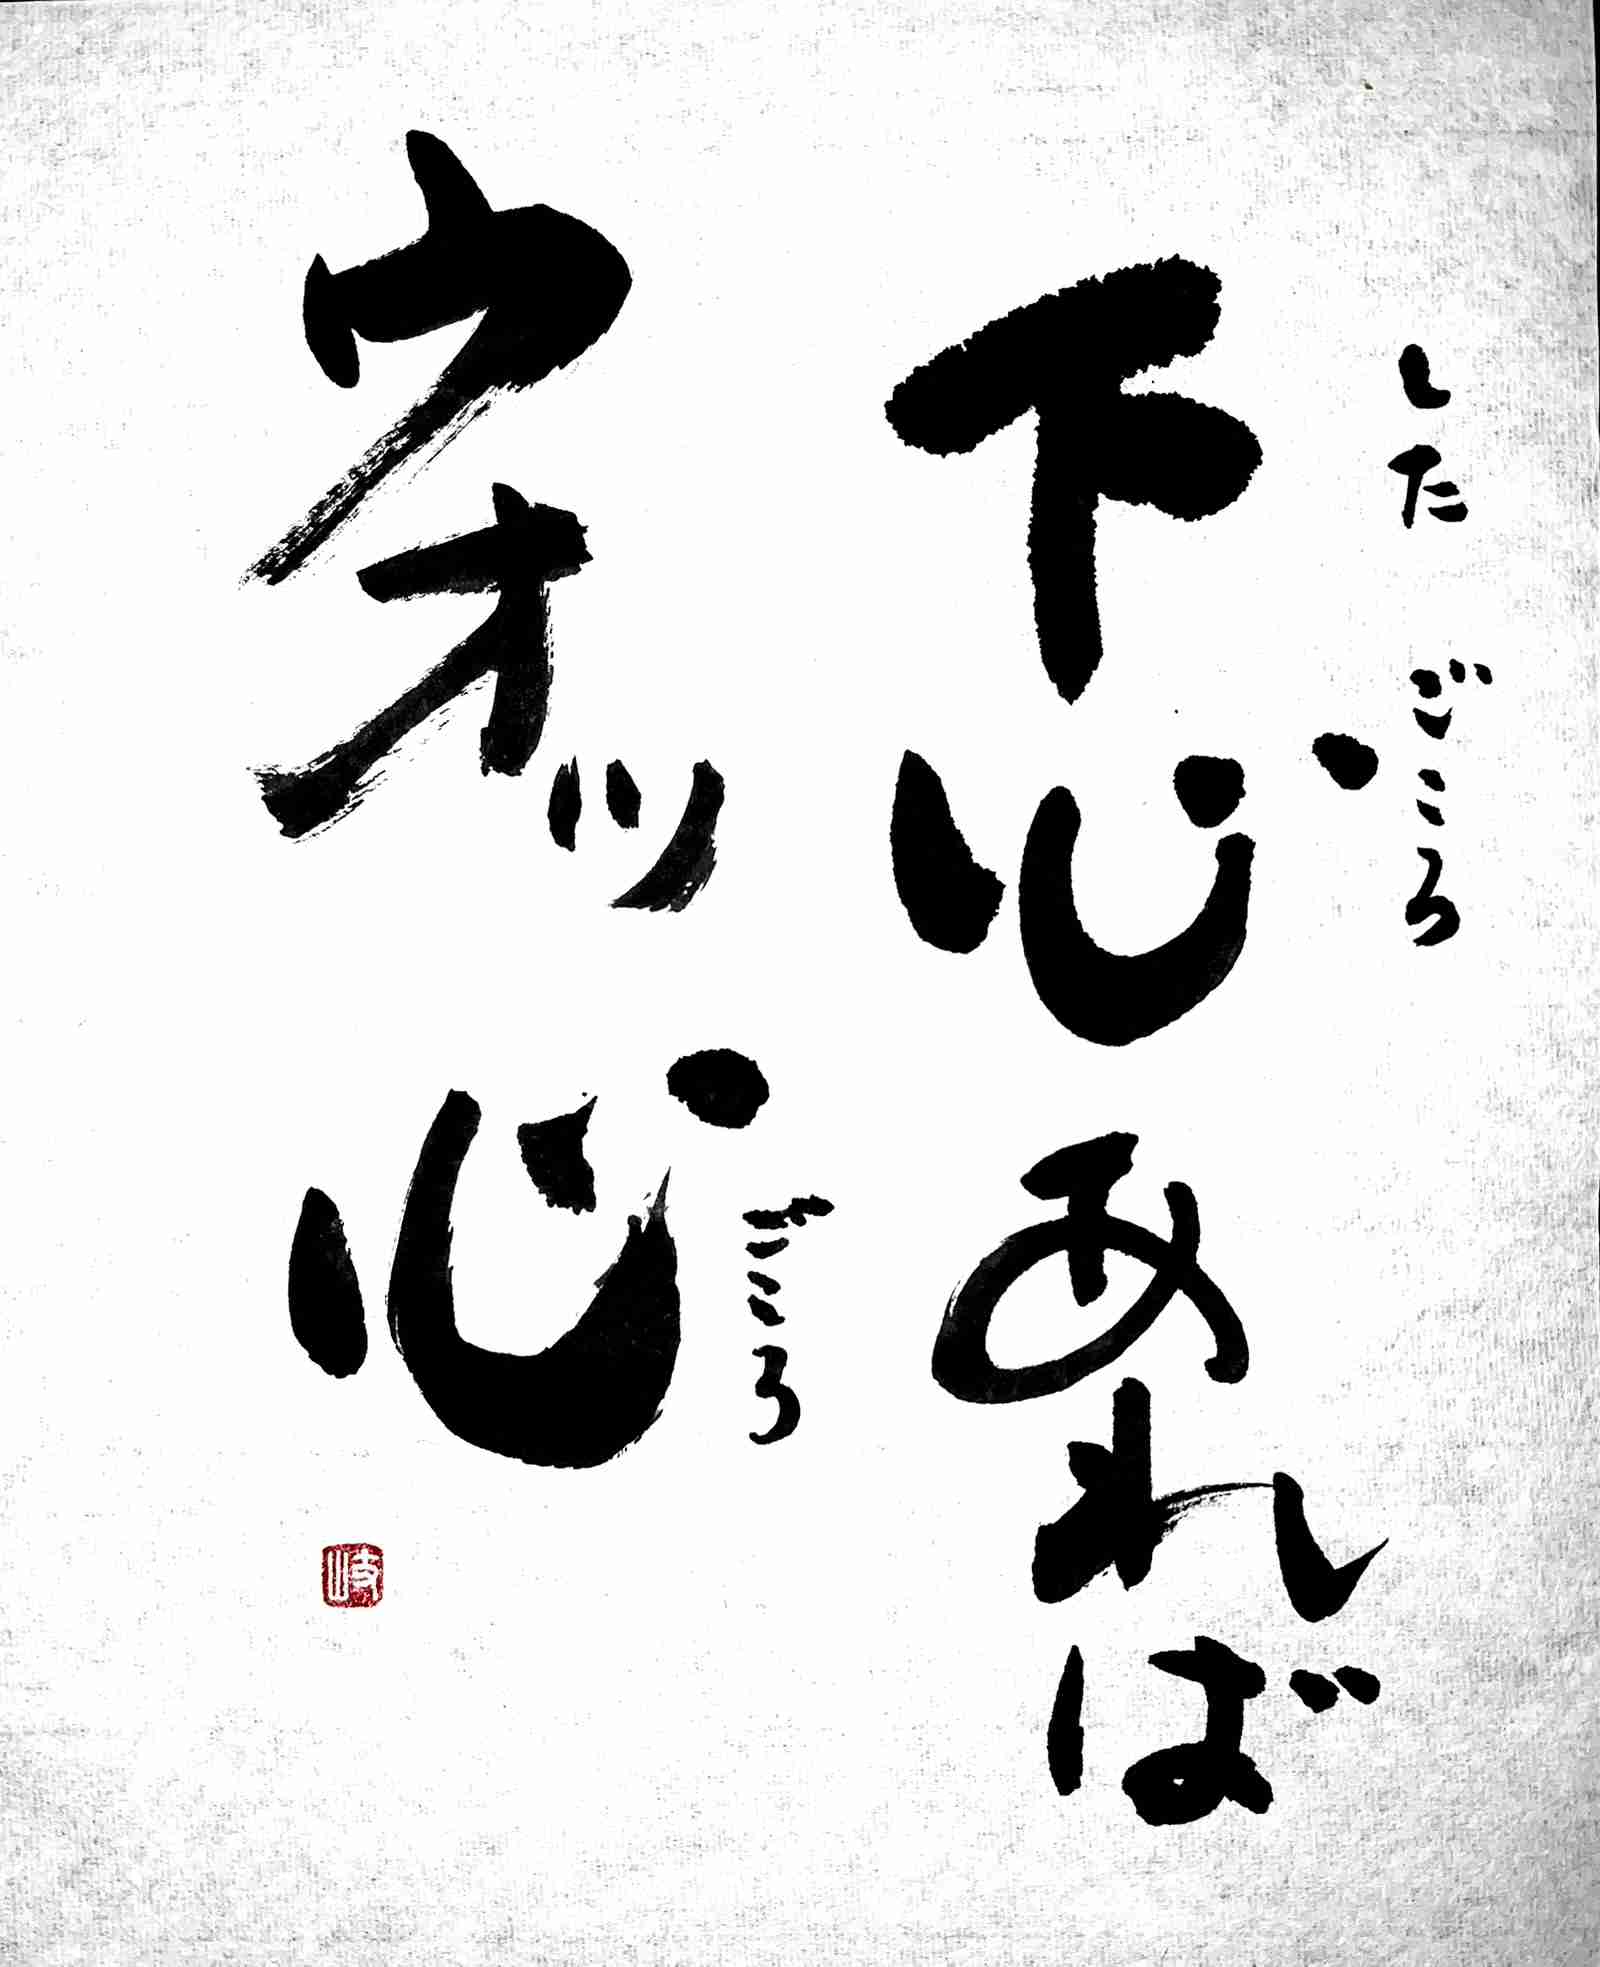 したごころ
下心あれば
ウオッ心
ごころ
岐